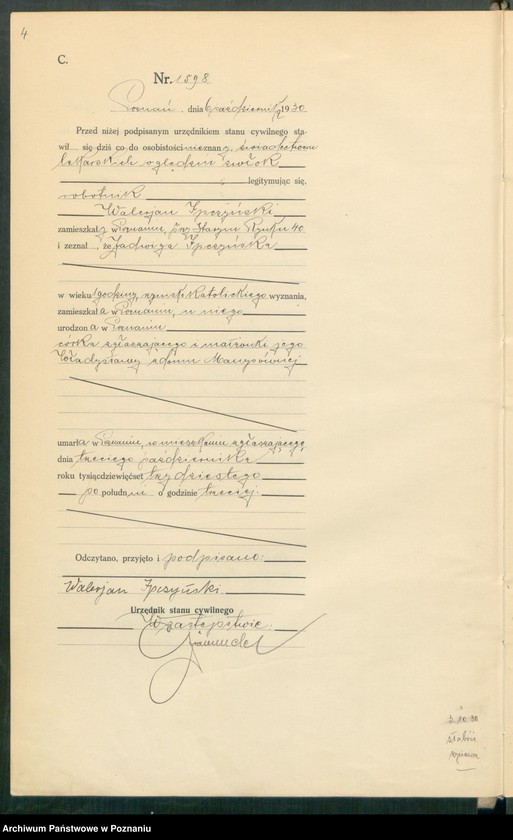 4
C.
Nr. 1598
Poznań, dnia 6 października 1930
Przed niżej podpisanym urzędnikiem stanu cywilnego sta-
wił się dziś co do osobistości nieznany, świadectwem
lekarskiem oględzin zwłok
legitymując się,
robotnik
Walerjan Ipczyński
zamieszkały w Poznaniu, przy Starym Rynku 40
i zeznał, że Jadwiga Ipczyńska
w wieku 1 godziny, rzymsko katolickiego wyznania,
zamieszkała w Poznaniu, u niego
urodzona w Poznaniu
córka zgłaszającego i małżonki jego
Władysławy z domu
umarła w Poznaniu, w mieszkaniu zgłaszającego
dnia trzeciego października
roku tysiącdziewięćset trzydziestego
po południu o godzinie trzeciej.
Odczytano, przyjęto i podpisano:
Walerjan Ipczyński
Urzędnik stanu cywilnego
W zastępstwie:
3 10 30
Archiwum Państwowe w Poznaniu